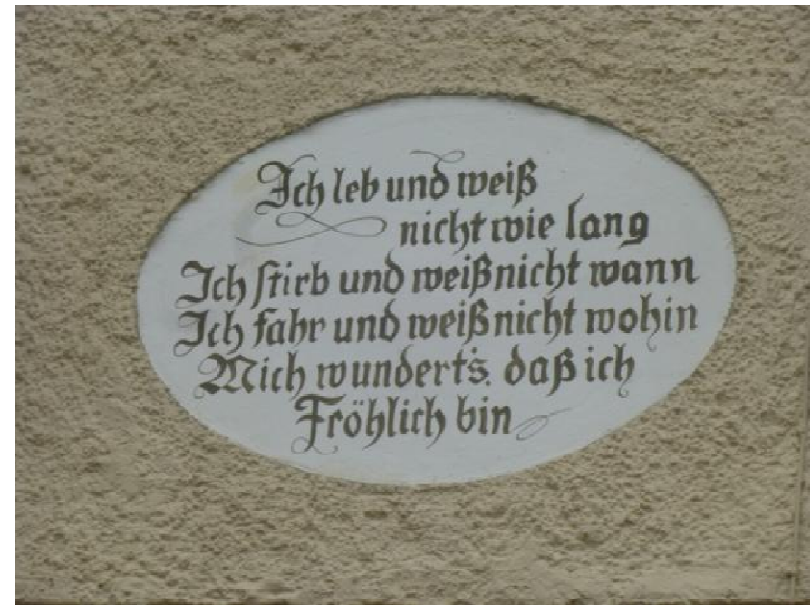 Ich leb und weiß
nicht wie lang
Ich stirb und weiß nicht wann
Ich fahr und weiß nicht wohin
Mich wundert's. daß ich
Fröhlich bin